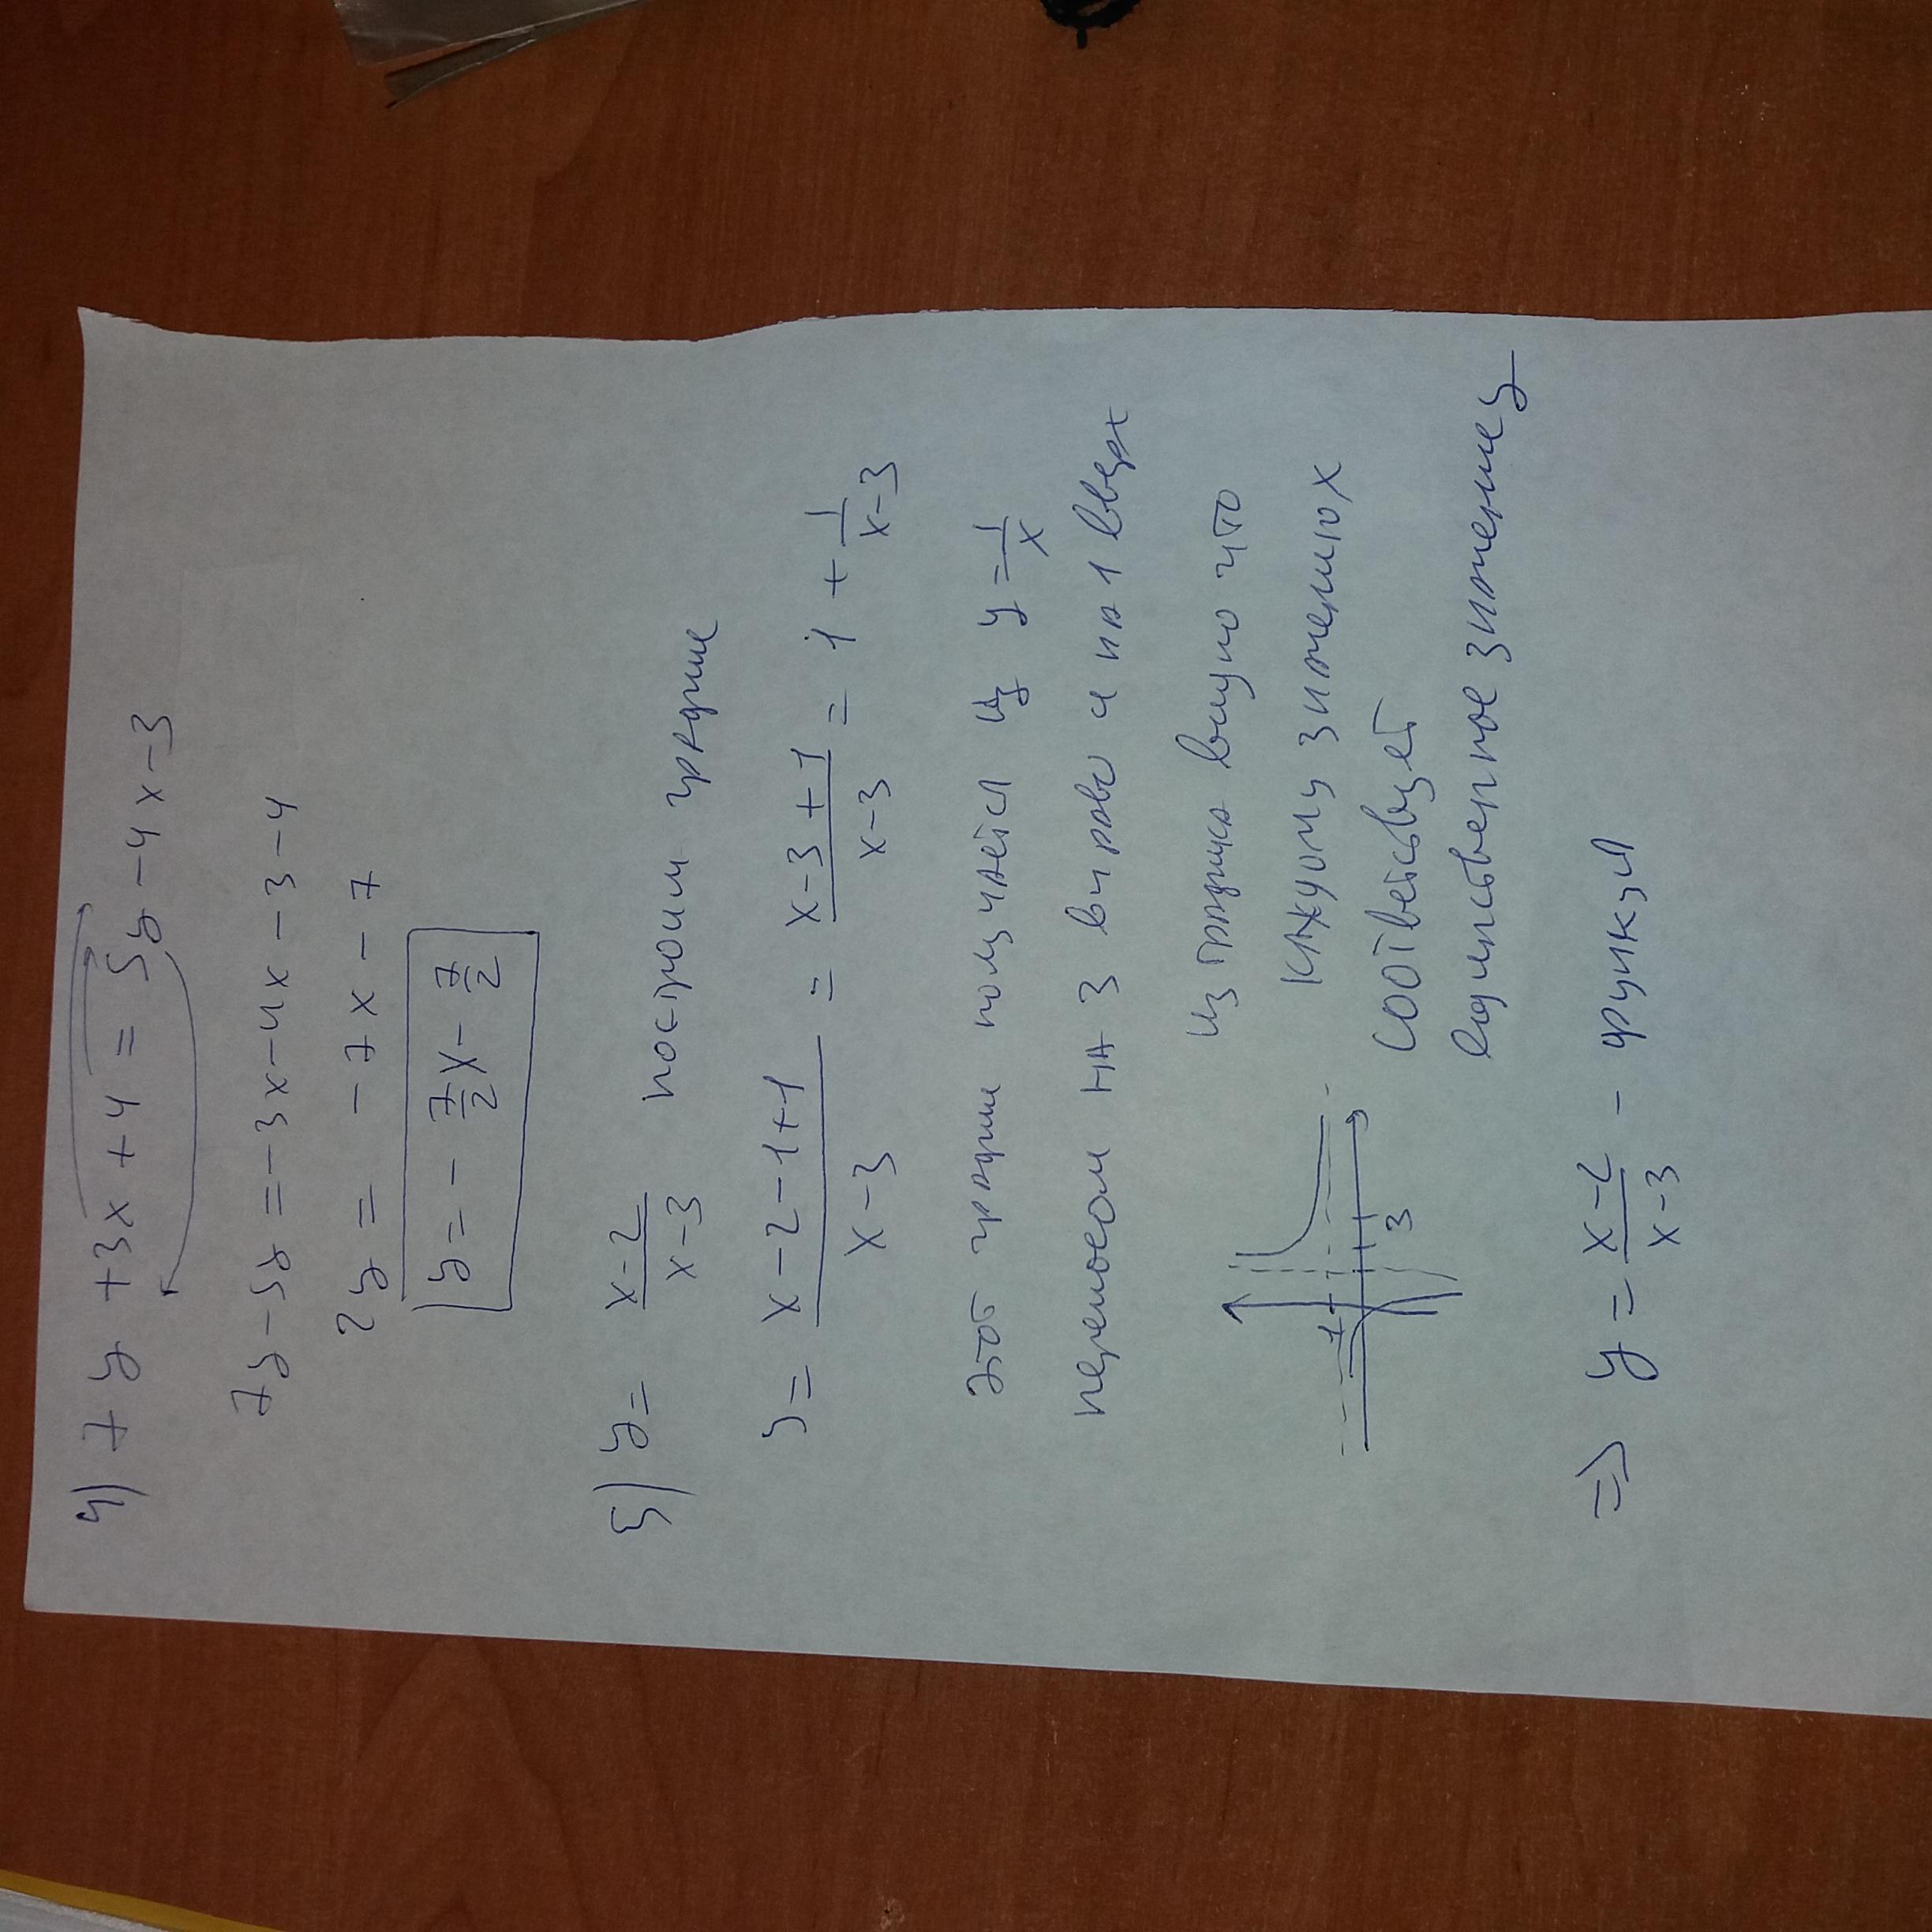 4) 7y + 3x + 4 = 5y - 4x - 3
7y - 5y = -3x - 4x - 3 - 4
2y = -7x - 7
y = -7/2 x - 7/2
5) y = (x-2)/(x-3) построим график
y = (x-2-1+1)/(x-3) = (x-3+1)/(x-3) = 1 + 1/(x-3)
этот график получается из y = 1/x
переносом на 3 вправо и на 1 вверх
из графика видно что
каждому значению x
соответсвует
единственное значение y
1
3
=> y = (x-2)/(x-3) - функция